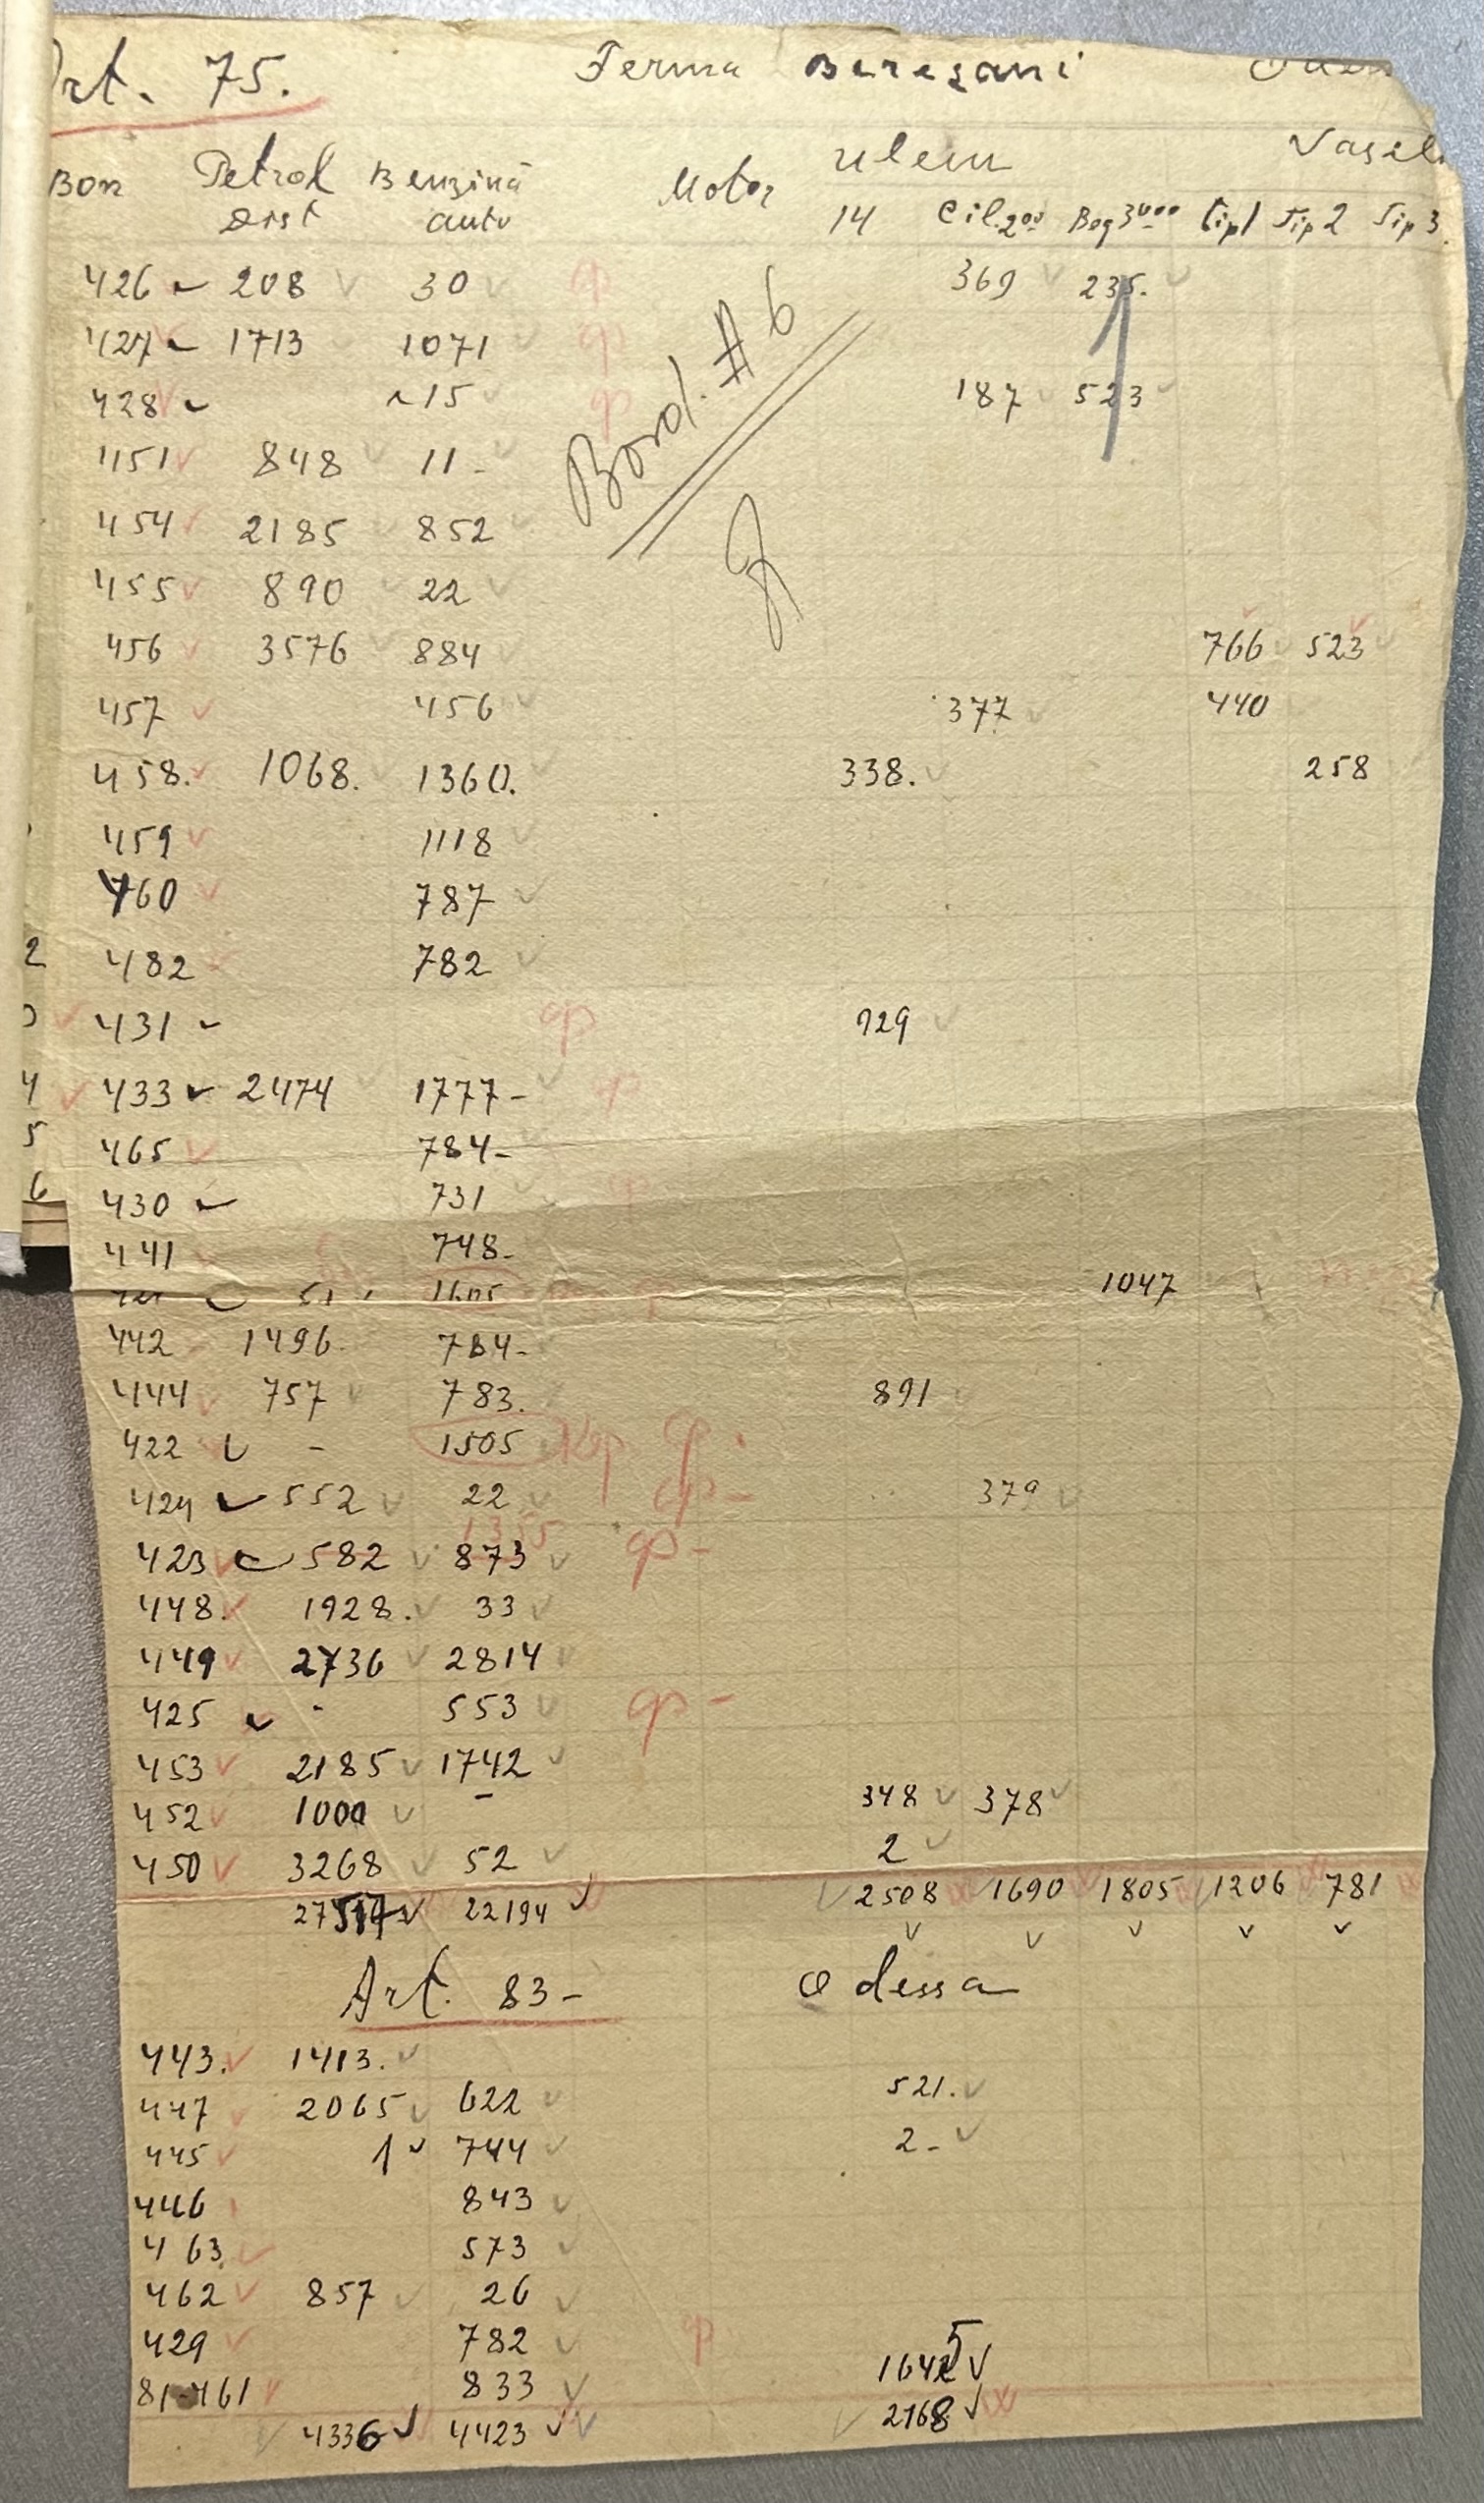 Art. 75. Ferma Beresani
Bon Petrol dist Benzină auto Motor ulein 14 Cil. 200 Bog 3000 Vasel Tip 1 Tip 2 Tip 3
Bord. # 6
426 208 30 369 235.
427 1713 1071
428 15 187 523
451 848 11 -
454 2185 852
455 890 22
456 3576 884 766 523
457 456 377 440
458. 1068. 1360. 338. 258
459 1118
460 787
482 782
431 929
433 2474 1777 -
465 784 -
430 731
441 748 -
1605 1047
442 1496. 784 -
444 757 783. 891
422 - 1505
424 552 22 379
1355
423 582 873
448. 1928. 33
449 2736 2814
425 - 553
453 2185 1742
452 1000 - 348 378
450 3268 52 2
22194 2508 1690 1805 1206 781
Art. 83 - Odessa
443. 1413.
447 2065 622 521.
445 1 744 2 -
446 843
463 573
462 857 26
429 782
81-461 833 1645
4336 4423 2168